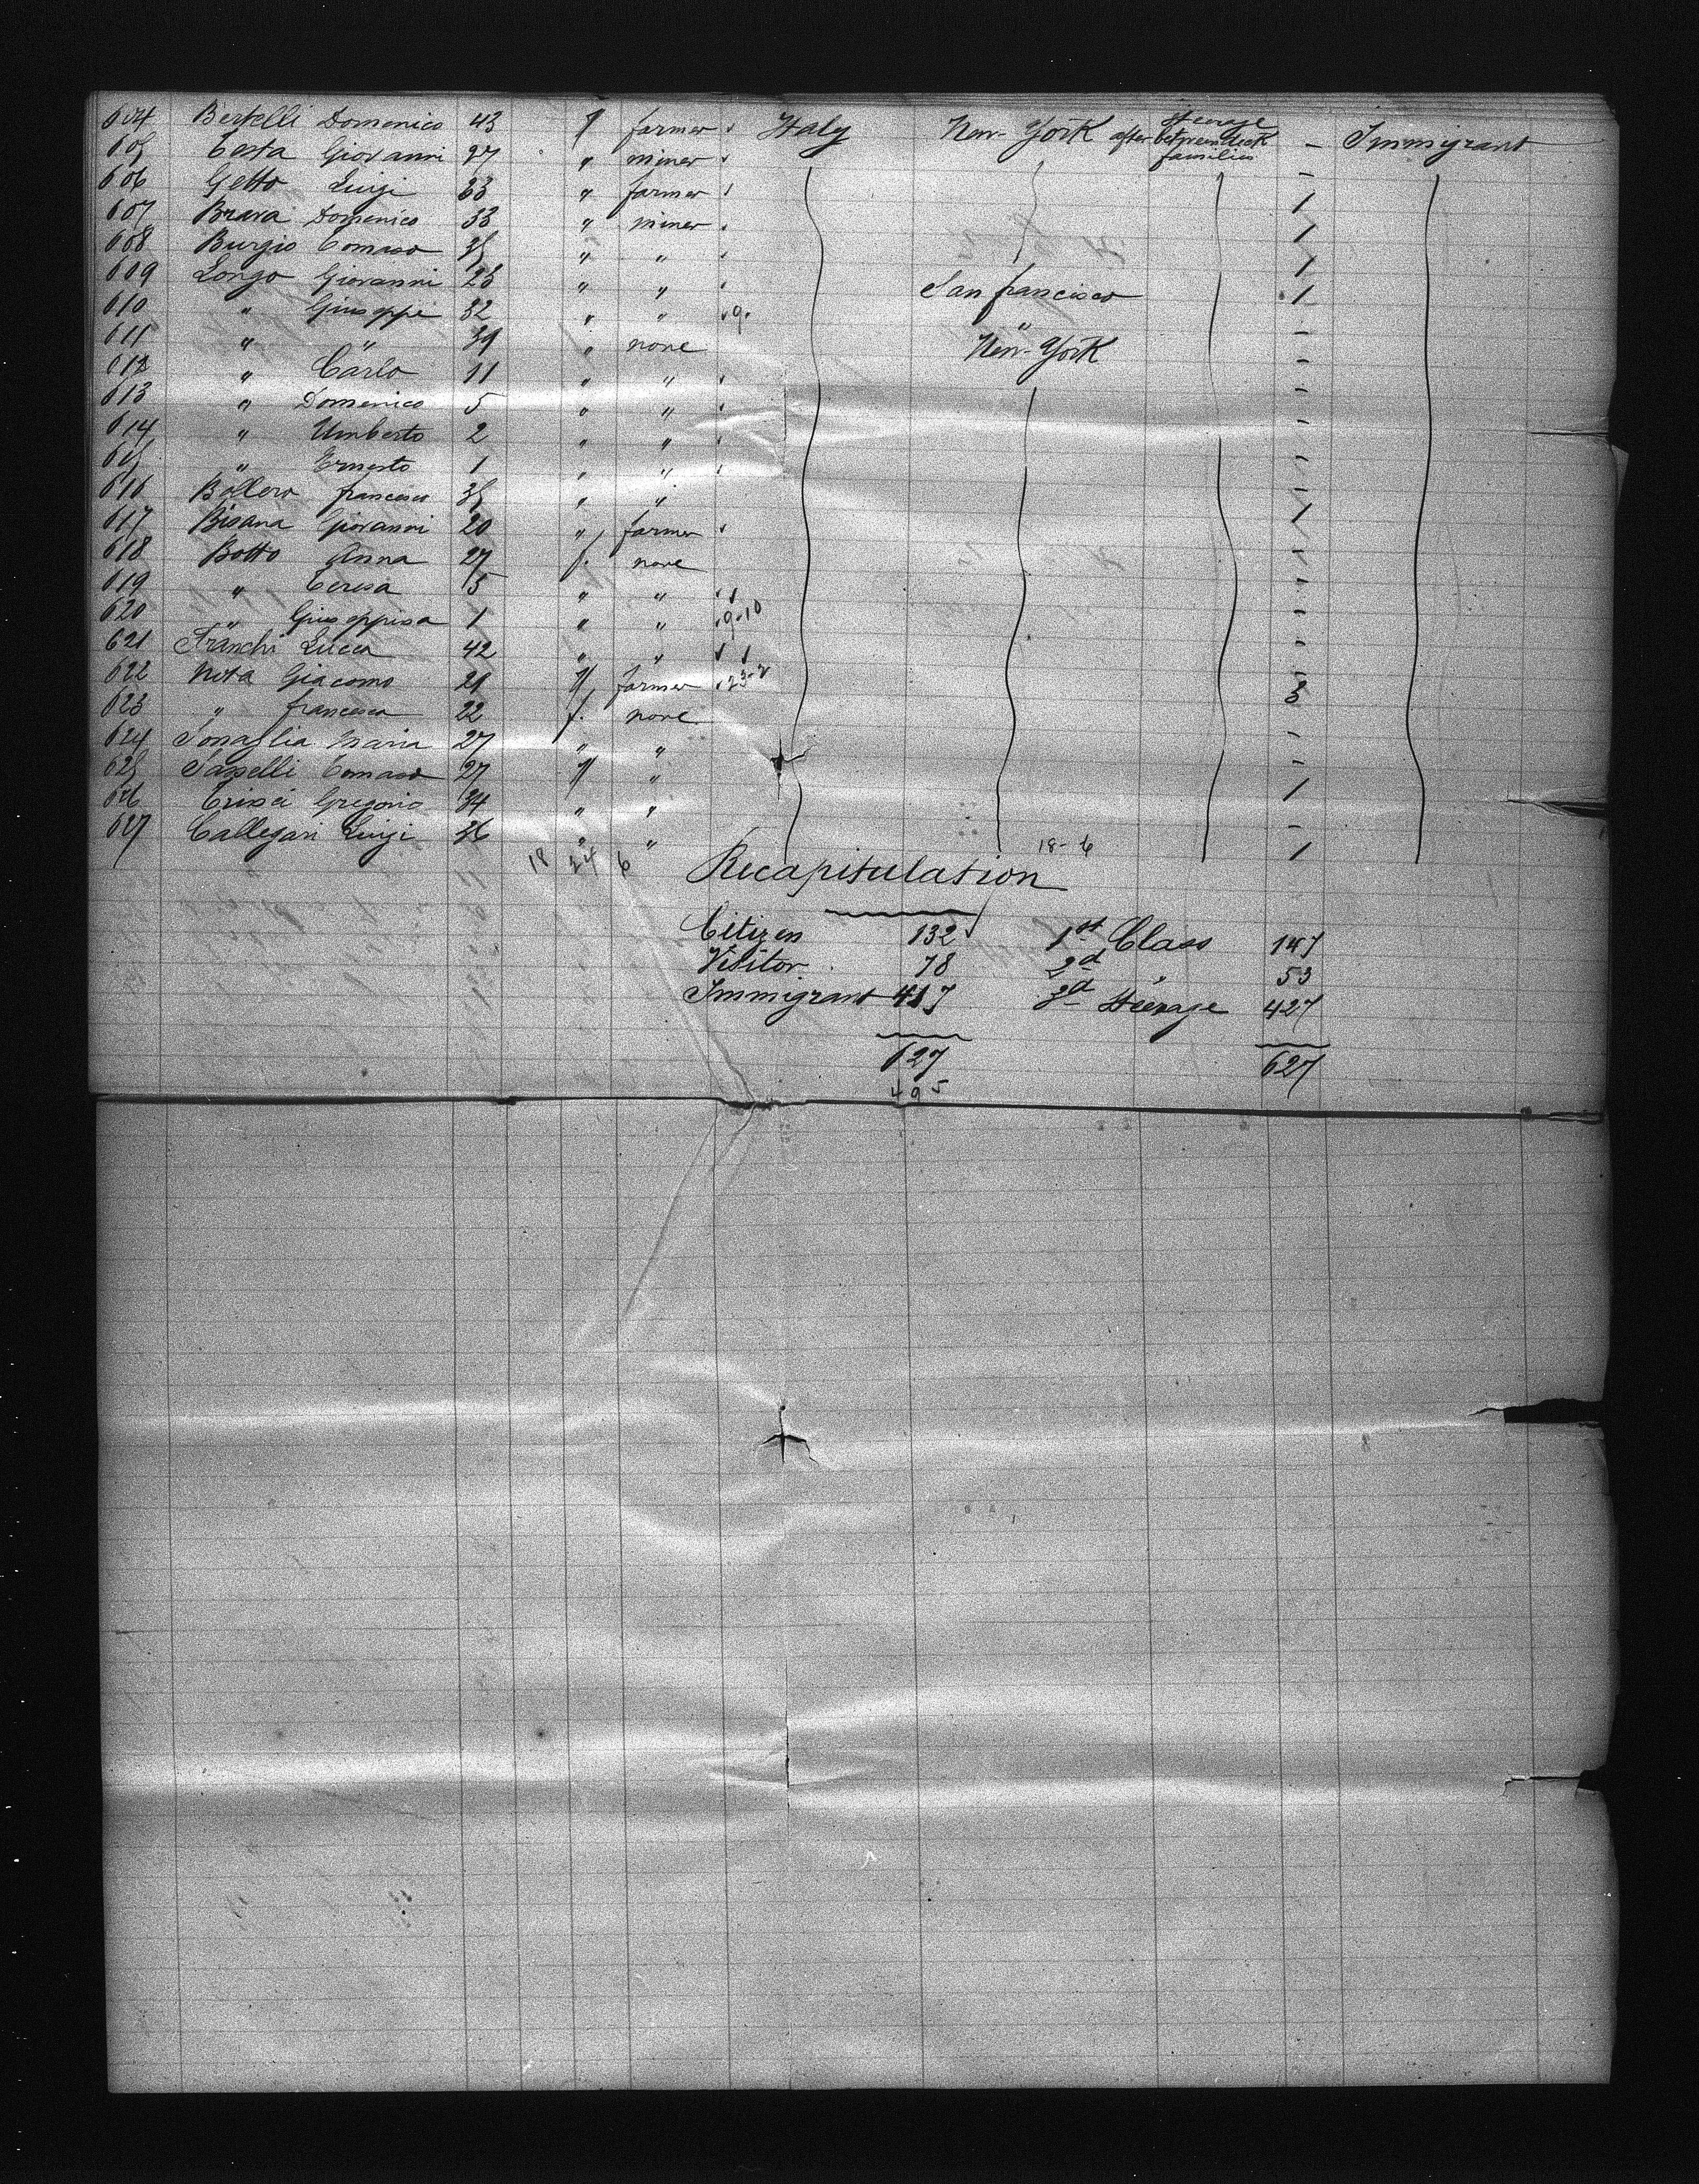 604 Bertelli Domenico 43 " farmer Italy New-York Steerage after between deck families - Immigrant
605 Testa Giovanni 27 " miner -
606 Getto Luigi 23 " farmer 1
607 Brava Domenico 33 " miner 1
608 Burgio Tomaso 35 " " 1
609 Longo Giovanni 23 " " San francisco 1
610 " Giuseppe 32 " " 9 " -
611 " " 39 " none New-York -
612 " Carlo 11 " " -
613 " Domenico 5 " " -
614 " Umberto 2 " " -
615 " Ernesto 1 " " -
616 Bollero francesco 35 " " 1
617 Bisana Giovanni 20 " farmer -
618 Botto Anna 27 f. none -
619 " Teresa 5 " " -
620 " Giuseppina 1 " " 9-10 -
621 Franchi Lucca 42 " "
622 Nota Giacomo 21 farmer 23-2 3
623 " francesca 22 f. none -
624 Maria 27 " " -
625 Tomaso 27 " 1
626 Crisci Gregorio 34 " " -
627 Callegari Luigi 36 " " 1
18 24 6 18-6
Recapitulation
Citizen 132 1st Class 147
Visitor 78 2d " 53
Immigrant 417 3d Steerage 427
627 627
495